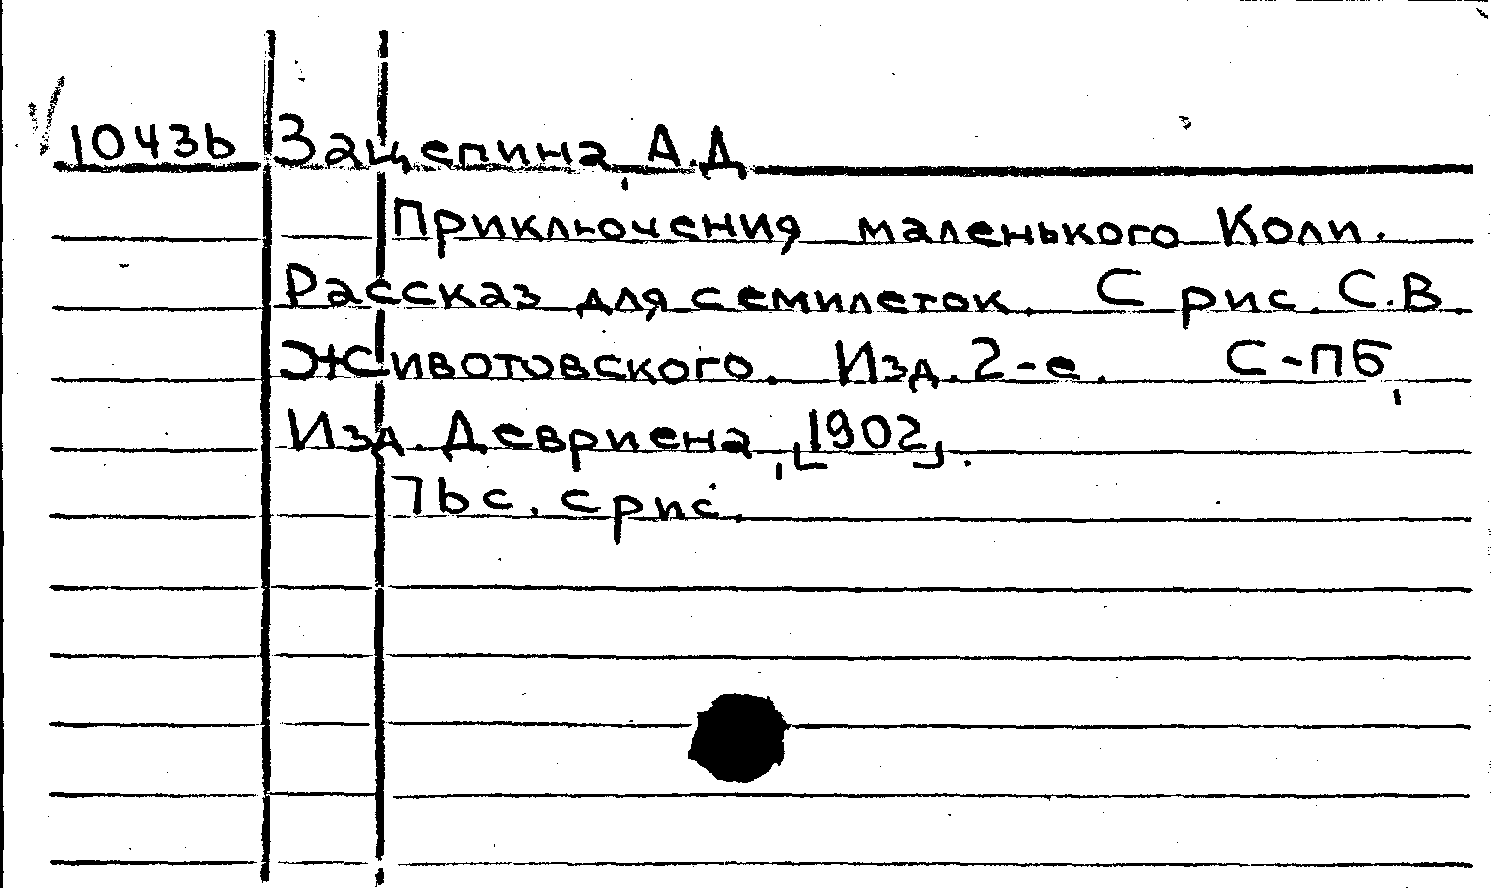 10436 Зацепина, А.Д
Приключения маленького Коли.
Рассказ для семилеток. С рис. С.В.
Животовского. Изд. 2-е. С-ПБ,
Изд. Девриена, [1902].
76 с. с рис.